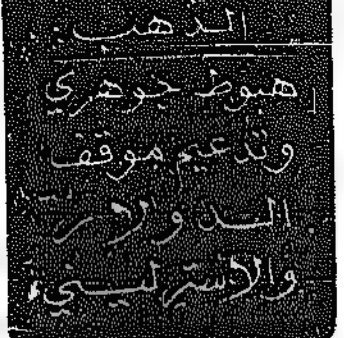 الذهب
هبوط جوهري
وتدعيم موقف
الدولار
والاسترليني